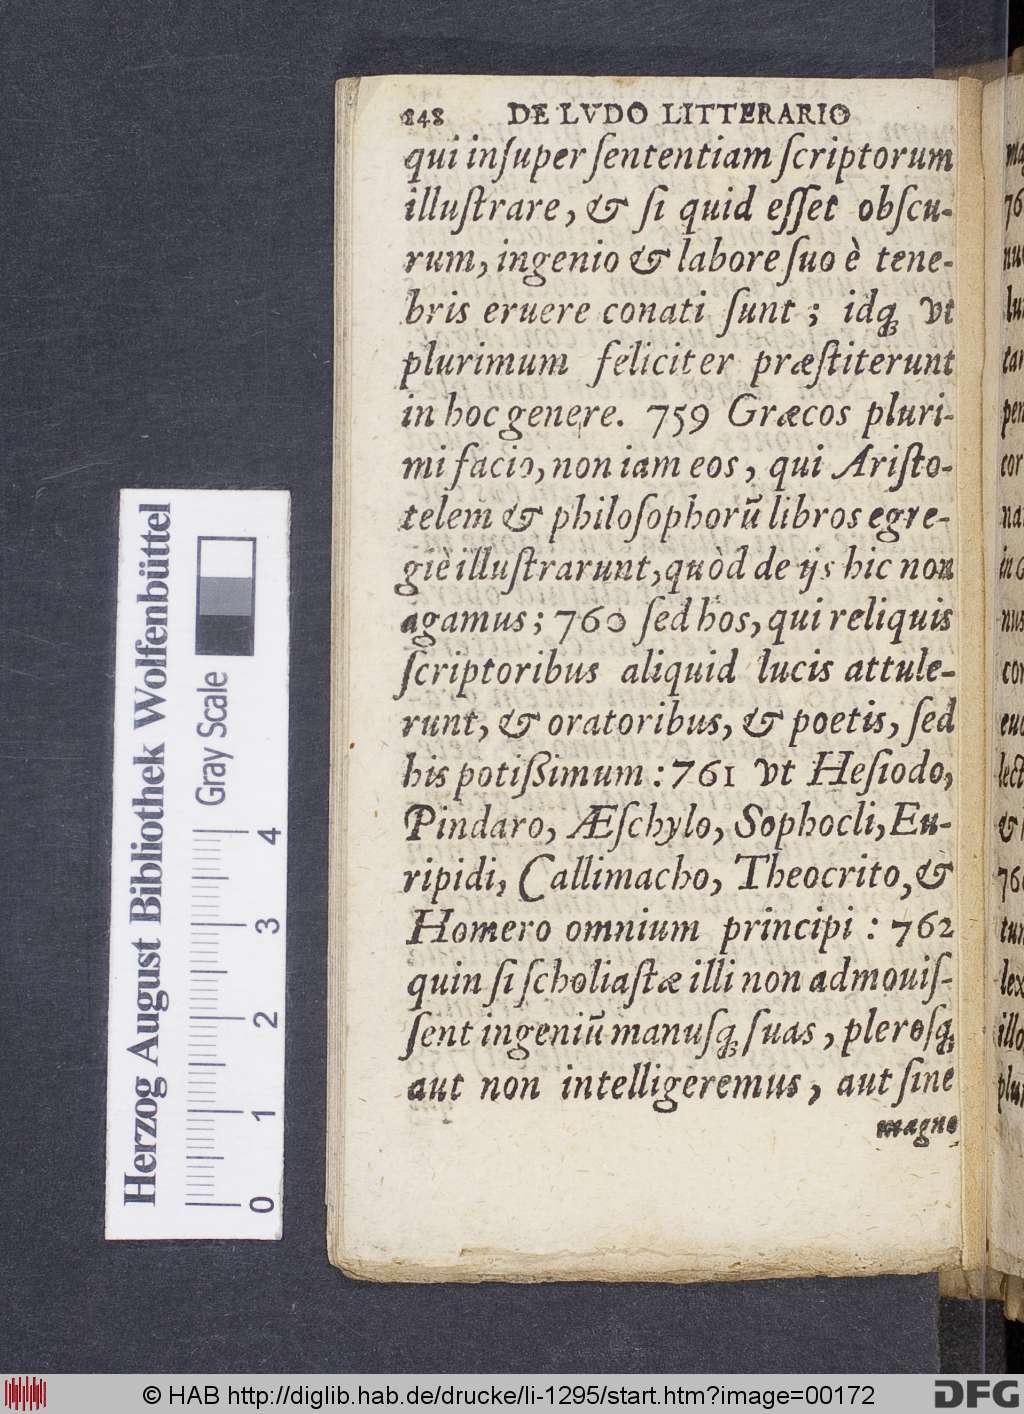 148 DE LVDO LITTERARIO
qui inſuper ſententiam ſcriptorum
illuſtrare, & ſi quid eſſet obſcu-
rum, ingenio & labore ſuo è tene-
bris eruere conati ſunt ; idq́ʒ vt
plurimum feliciter præſtiterunt
in hoc genere. 759 Græcos pluri-
mi facio, non iam eos, qui Ariſto-
telem & philoſophorũ libros egre-
giè illuſtrarunt, quòd de ijs hic non
agamus ; 760 ſed hos, qui reliquis
ſcriptoribus aliquid lucis attule-
runt, & oratoribus, & poetis, ſed
his potißimum : 761 vt Heſiodo,
Pindaro, Æſchylo, Sophocli, Eu-
ripidi, Callimacho, Theocrito, &
Homero omnium principi : 762
quin ſi ſcholiaſtæ illi non admouiſ-
ſent ingeniũ manuſqʒ ſuas, pleroſqʒ
aut non intelligeremus, aut ſine
magno
Herzog August Bibliothek Wolfenbüttel
Gray Scale
0 1 2 3 4
© HAB http://diglib.hab.de/drucke/li-1295/start.htm?image=00172
DFG